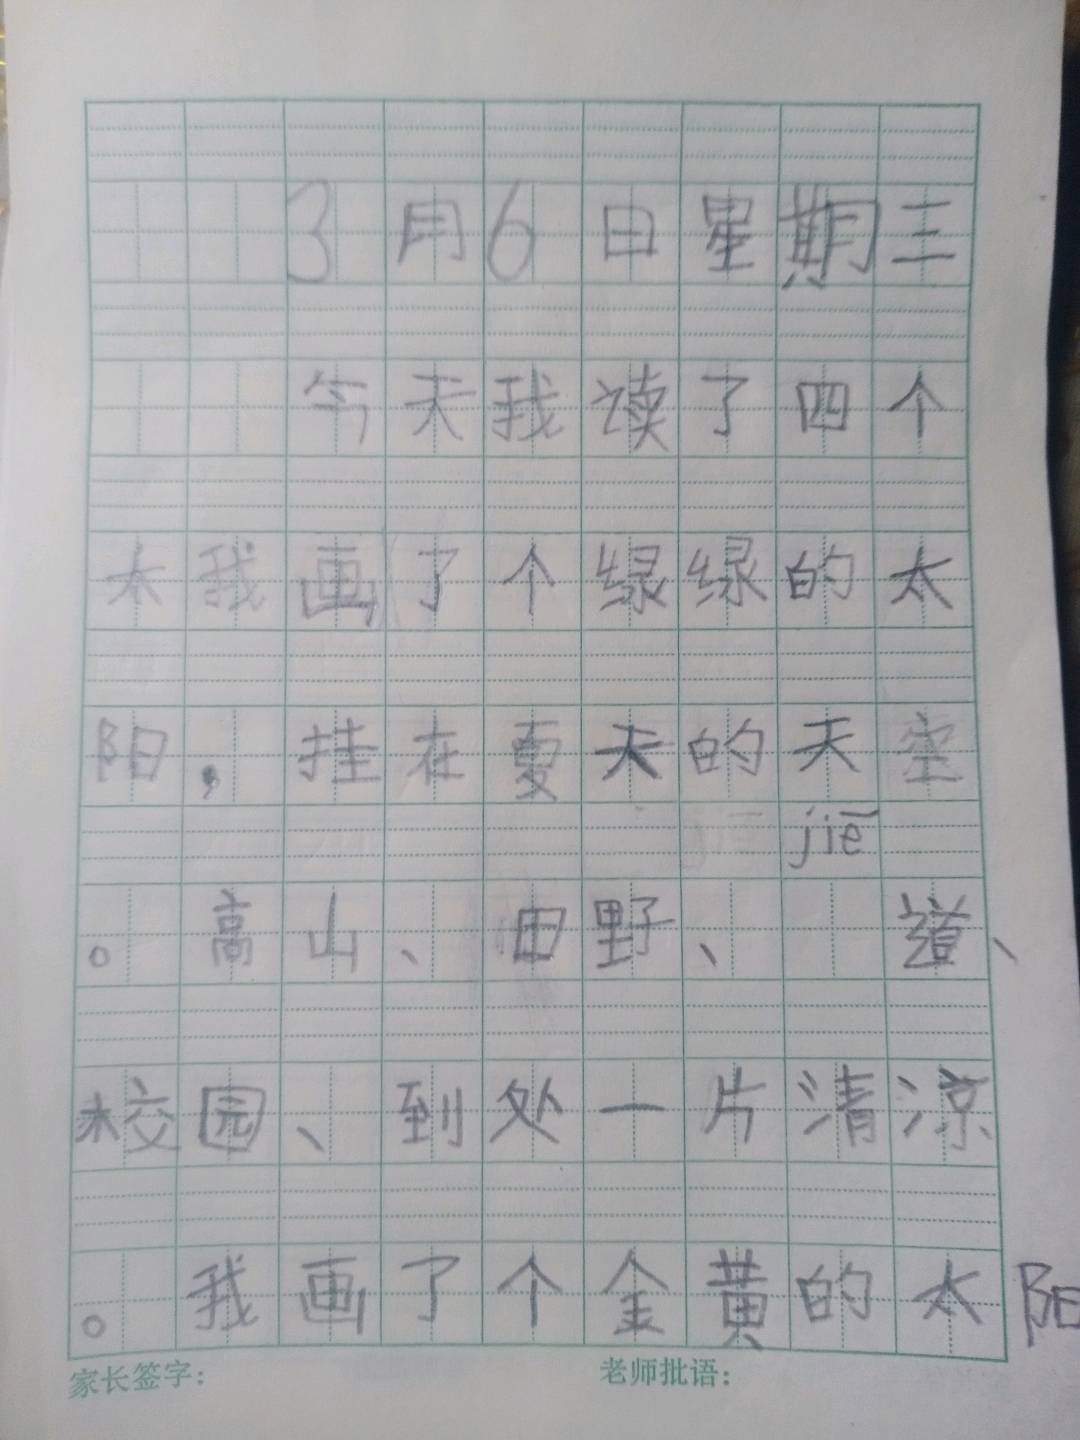 3月6日星期三
今天我读了四个
太我画了个绿绿的太
阳，挂在夏天的天空
jiē
。高山、田野、 道、
校园、到处一片清凉
。我画了个金黄的太阳
家长签字： 老师批语：